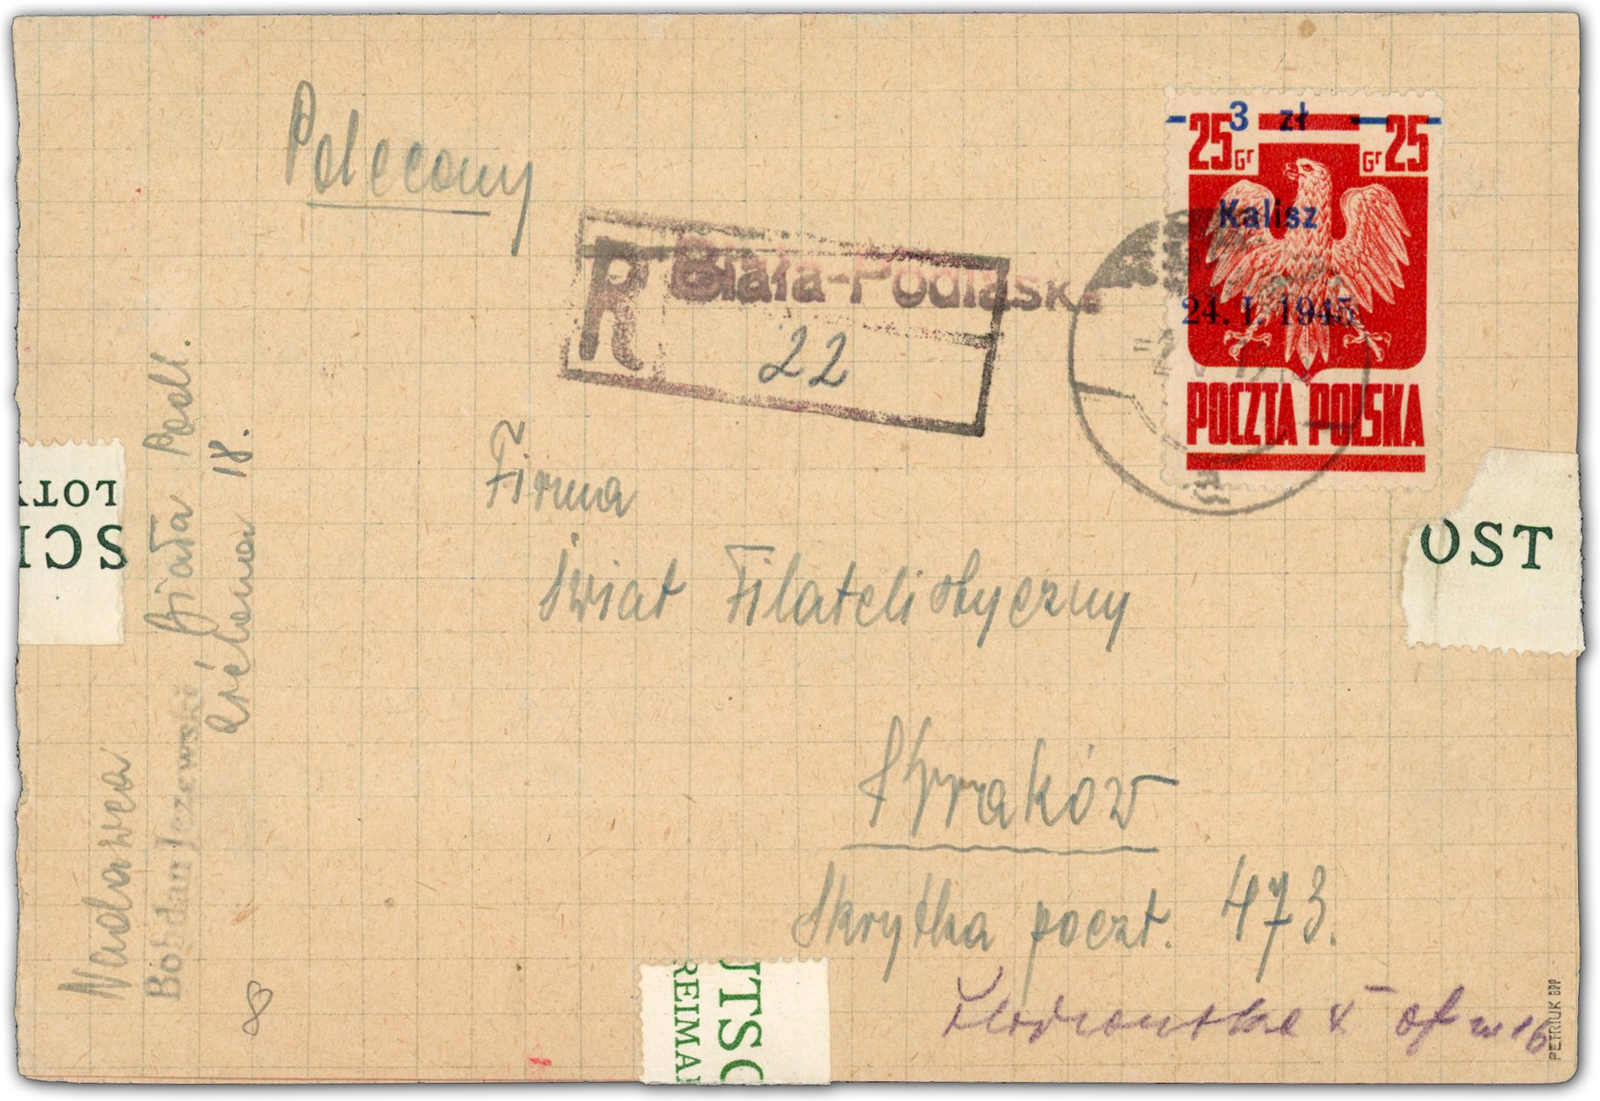 Polecony
3 zł
25 Gr Gr 25
Kalisz
24. I. 1945
POCZTA POLSKA
R Biała-Podlaska
22
Firma
Świat Filatelistyczny
Kraków
Skrytka poczt. 473.
16
Nadawca
Bohdan Jezewski
Biała Podl.
18.
LOTY
SCH
OST
UTSC
REIMA
PETRIUK BPP